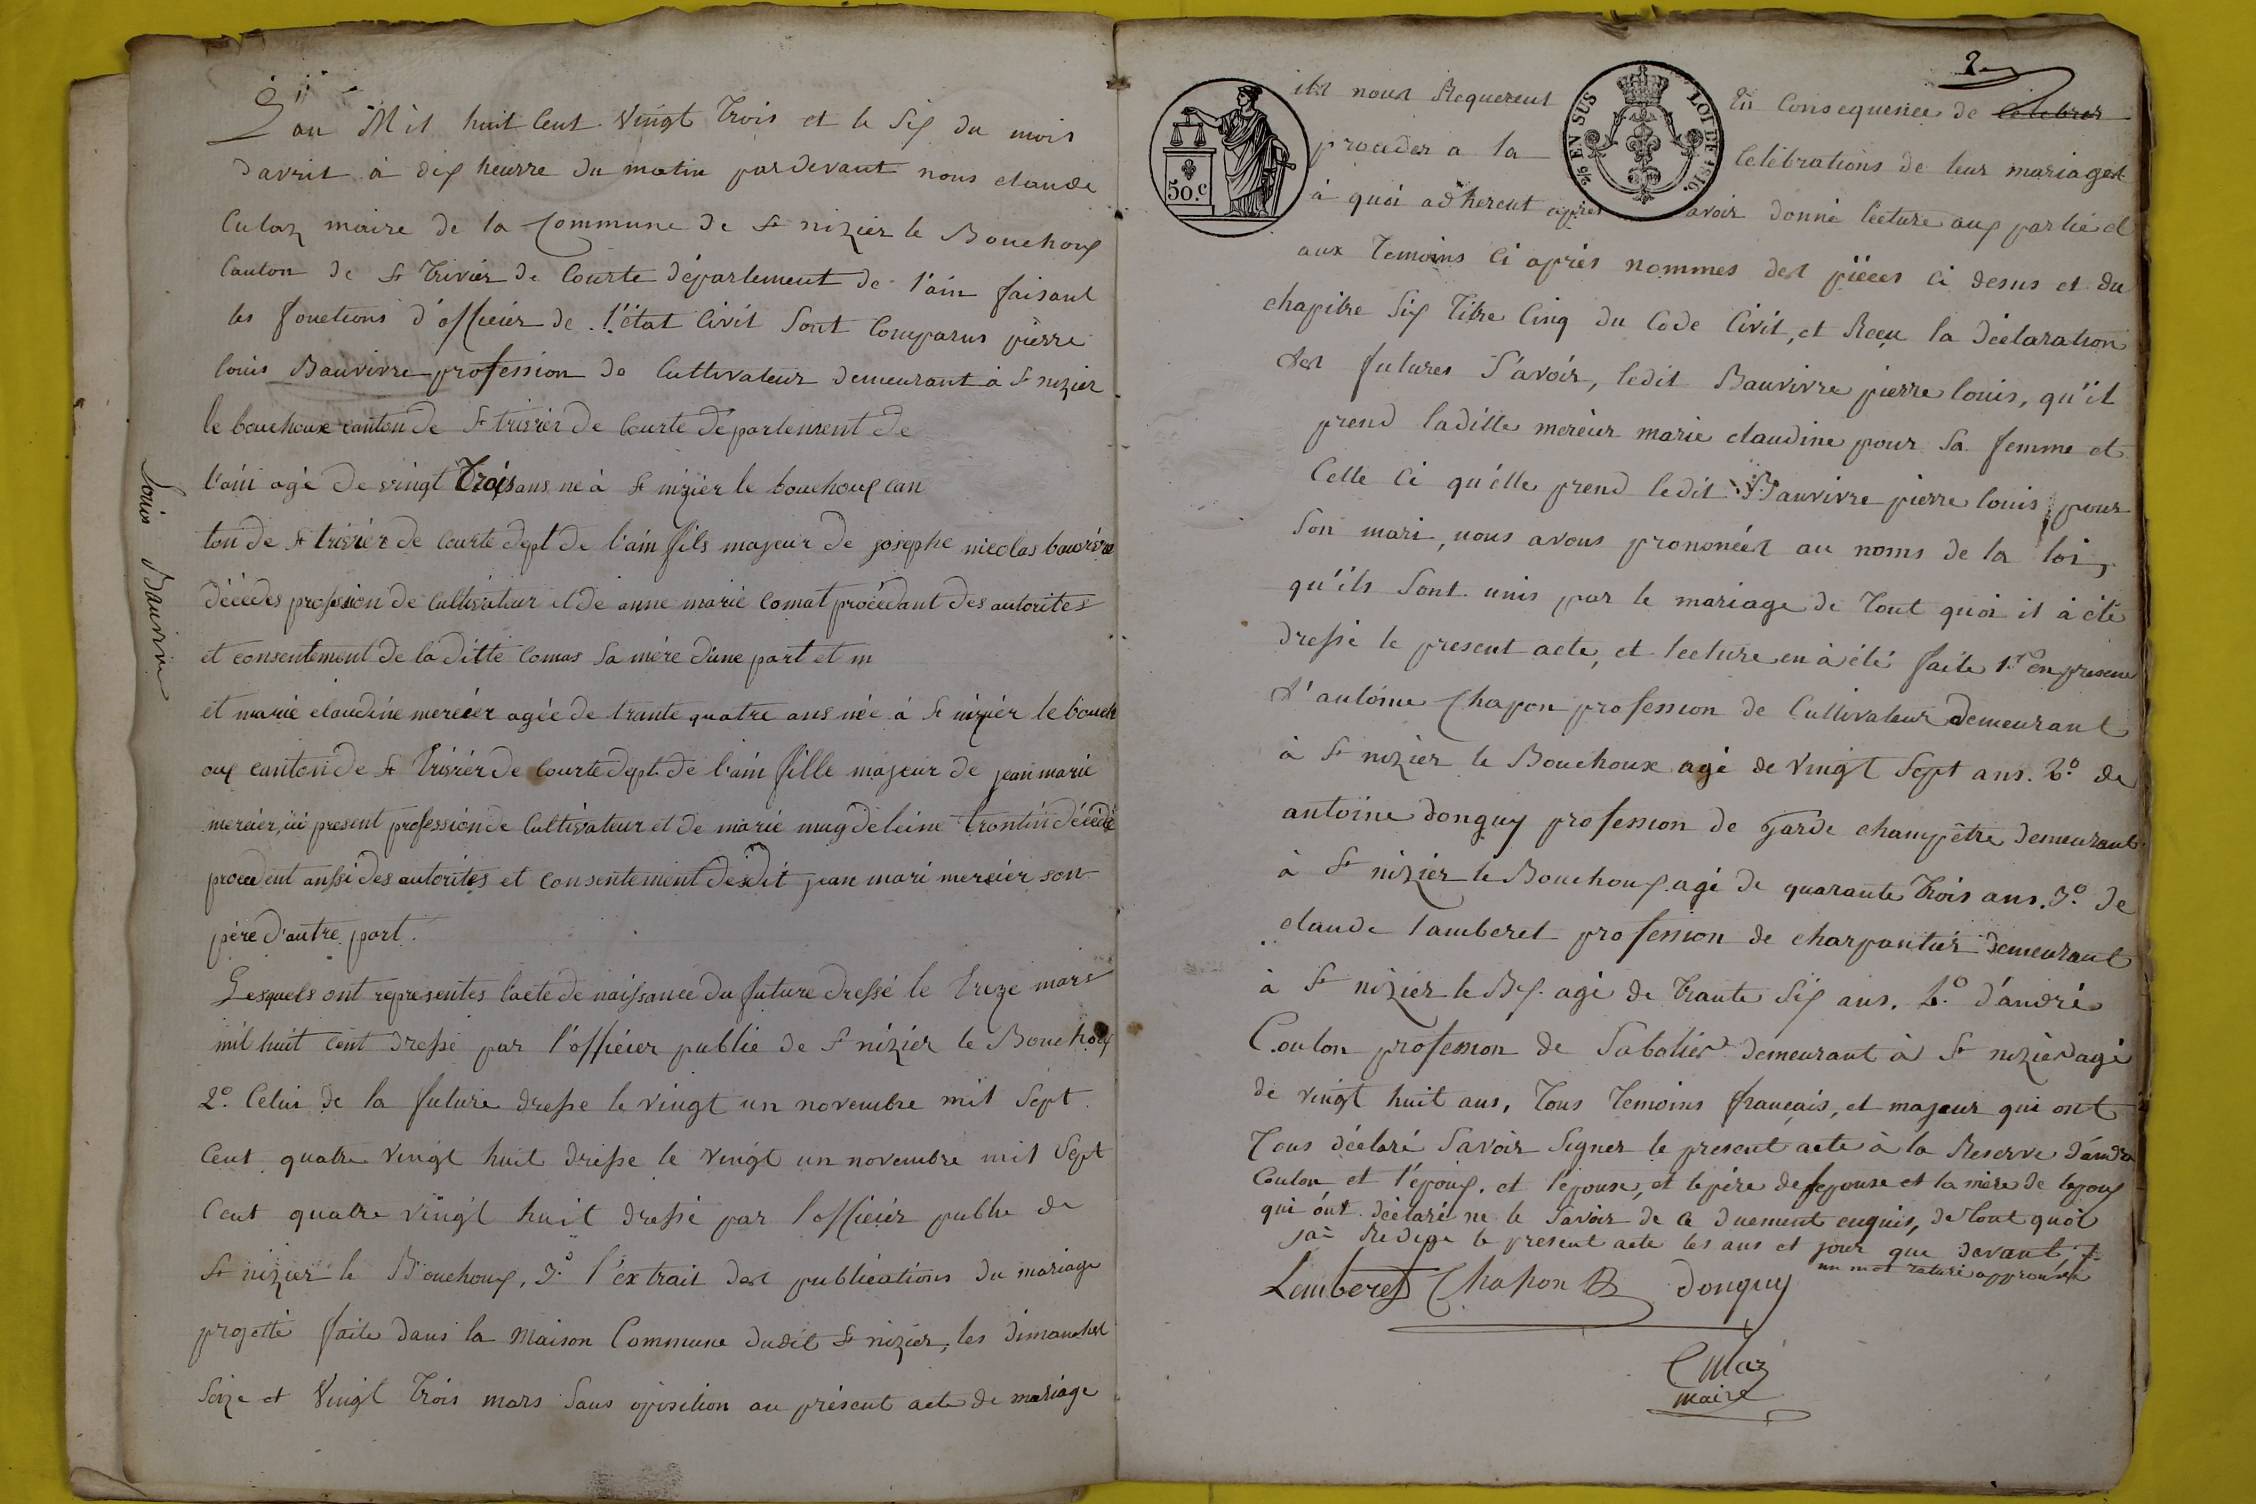 L'an Mil huit Cent Vingt Trois et le Six du mois
d'avril à dix heurre du matin pardevant nous claude
Culaz maire de la Commune de St nizier le Bouchoux
Canton de St Trivier de Courte département de l'ain faisant
les fonctions d'officier de l'état Civil Sont Comparus pierre
louis Bauvivre profession de Cultivateur demeurant à St nizier
le bouchoux canton de St trivier de Courte département de
l'ain agé de vingt Trois ans né à St nizier le bouchoux can
ton de St trivier de Courte dept de l'ain fils majeur de josephe nicolas bauvivre
décédés profession de Cultivateur et de anne marie Comat procédant des autorites
et consentement de la ditte Comas Sa mère d'une part et m
et marie claudine mercier agée de trante quatre ans née à St nizier le bouch
oux canton de St Trivier de Courte dept de l'ain fille majeur de jean marie
mercier, ici present profession de Cultivateur et de marie magdeleine trontin décédé
procedent aussi des autorités et Consentement desdit jean mari mercier son
père d'autre part.
Lesquels ont representes l'acte de naissance du future dressé le treize mars
mil huit cent dressé par l'officier public de St nizier le Bouchoux
2.º Celui de la future dresse le vingt un novembre mil Sept
Cent quatre vingt huit dresse le vingt un novembre mil Sept
Cent quatre vingt huit dressé par l'officier public de
St nizier le Bouchoux, 3.º l'extrait des publications du mariage
projetté faite dans la Maison Commune dudit St nizier, les dimanches
Seize et Vingt Trois mars Sans oposition au présent acte de mariage
Louis Bauvivre
2
50.c
25 EN SUS
LOI DE 1816
ils nous Requerent En Consequence de celebrer
proceder a la Celebrations de leur mariages
à quoi adherent après avoir donné lecture aux partie et
aux Temoins Ci après nommes des pièces Ci desus et du
chapitre Six Titre Cinq du Code Civil, et Reçu la déclaration
des futures Savoir, ledit Bauvivre pierre louis, qu'il
prend laditte mercier marie claudine pour Sa femme et
Celle Ci qu'elle prend ledit Bauvivre pierre louis pour
Son mari, nous avons prononcés au noms de la loi,
qu'ils Sont unis par le mariage de Tout quoi il à été
dressé le present acte, et lecture en à été faite 1.º en presence
d'antoine Chapon profession de Cultivateur demeurant
à St nizier le Bouchoux agé de vingt Sept ans. 2.º de
antoine donguy profession de garde champêtre demeurant
à St nizier le Bouchoux agé de quarante Trois ans. 3.º de
claude lamberet profession de charpantier demeurant
à St nizier le Bx. agé de Trante Six ans. 4.º d'andré
Coulon profession de Sabotier demeurant à St nizier agé
de vingt huit ans, Tous Temoins français, et majeur qui ont
Tous déclaré Savoir Signer le present acte à la Reserve d'andre
Coulon et l'epoux. et l'epouse, et le père de lepouse et la mère de lepoux
qui ont déclaré ne le Savoir de ce duement enquis, de tout quoi
jai Redige le present acte les ans et jour que devant
un mot raturé approuvé
Lamberet Chapon Donguy
Culaz
maire